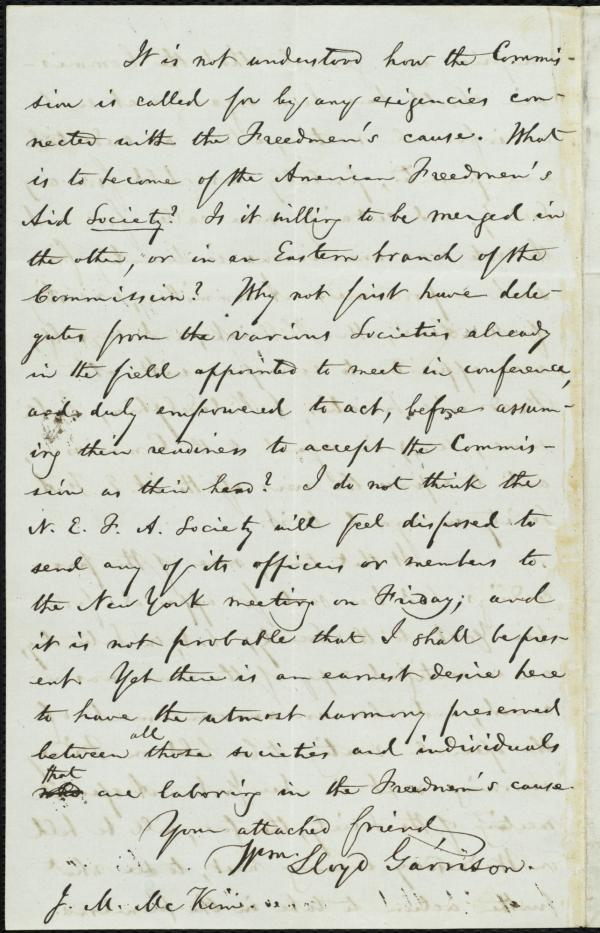 It is not understood how the Commis-
sion is called for by any exigencies con-
nected with the Freedmen's cause. What
is to become of the American Freedmen's
Aid Society? Is it willing to be merged in
the other, or in an Eastern branch of the
Commission? Why not first have dele-
gates from the various Societies already
in the field appointed to meet in conference,
and duly empowered to act, before assum-
ing their readiness to accept the Commis-
sion as their head? I do not think the
N. E. F. A. Society will feel disposed to
send any of its officers or members to
the New York meeting on Friday; and
it is not probable that I shall be pres-
ent. Yet there is an earnest desire here
to have the utmost harmony preserved
between all those societies and individuals
that are laboring in the Freedmen's cause.
Your attached friend,
Wm. Lloyd Garrison.
J. M. McKim.